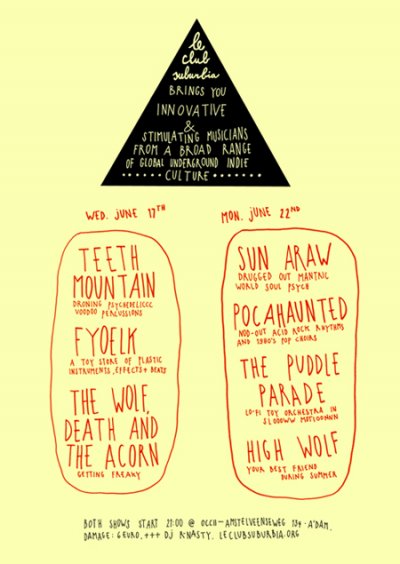 le
club
suburbia
BRINGS YOU
INNOVATIVE
&
STIMULATING MUSICIANS
FROM A BROAD RANGE
OF GLOBAL UNDERGROUND INDIE
CULTURE
WED. JUNE 17TH
TEETH
MOUNTAIN
DRONING PSYCHEDELICCC
VOODOO PERCUSSIONS
FYOELK
A TOY STORE OF PLASTIC
INSTRUMENTS, EFFECTS + BEATS
THE WOLF,
DEATH AND
THE ACORN
GETTING FREAKY
MON. JUNE 22ND
SUN ARAW
DRUGGED OUT MANTRIC
WORLD SOUL PSYCH
POCAHAUNTED
NOD-OUT ACID ROCK RHYTHMS
AND 1940'S POP CHOIRS
THE PUDDLE
PARADE
LO-FI TOY ORCHESTRA IN
SLOOOWW MOTIOONNN
HIGH WOLF
YOUR BEST FRIEND
DURING SUMMER
BOTH SHOWS START 21:00 @ OCCII-AMSTELVEENSEWEG 134 - A'DAM.
DAMAGE: 6 EURO. +++ DJ K-NASTY. LECLUBSUBURBIA.ORG